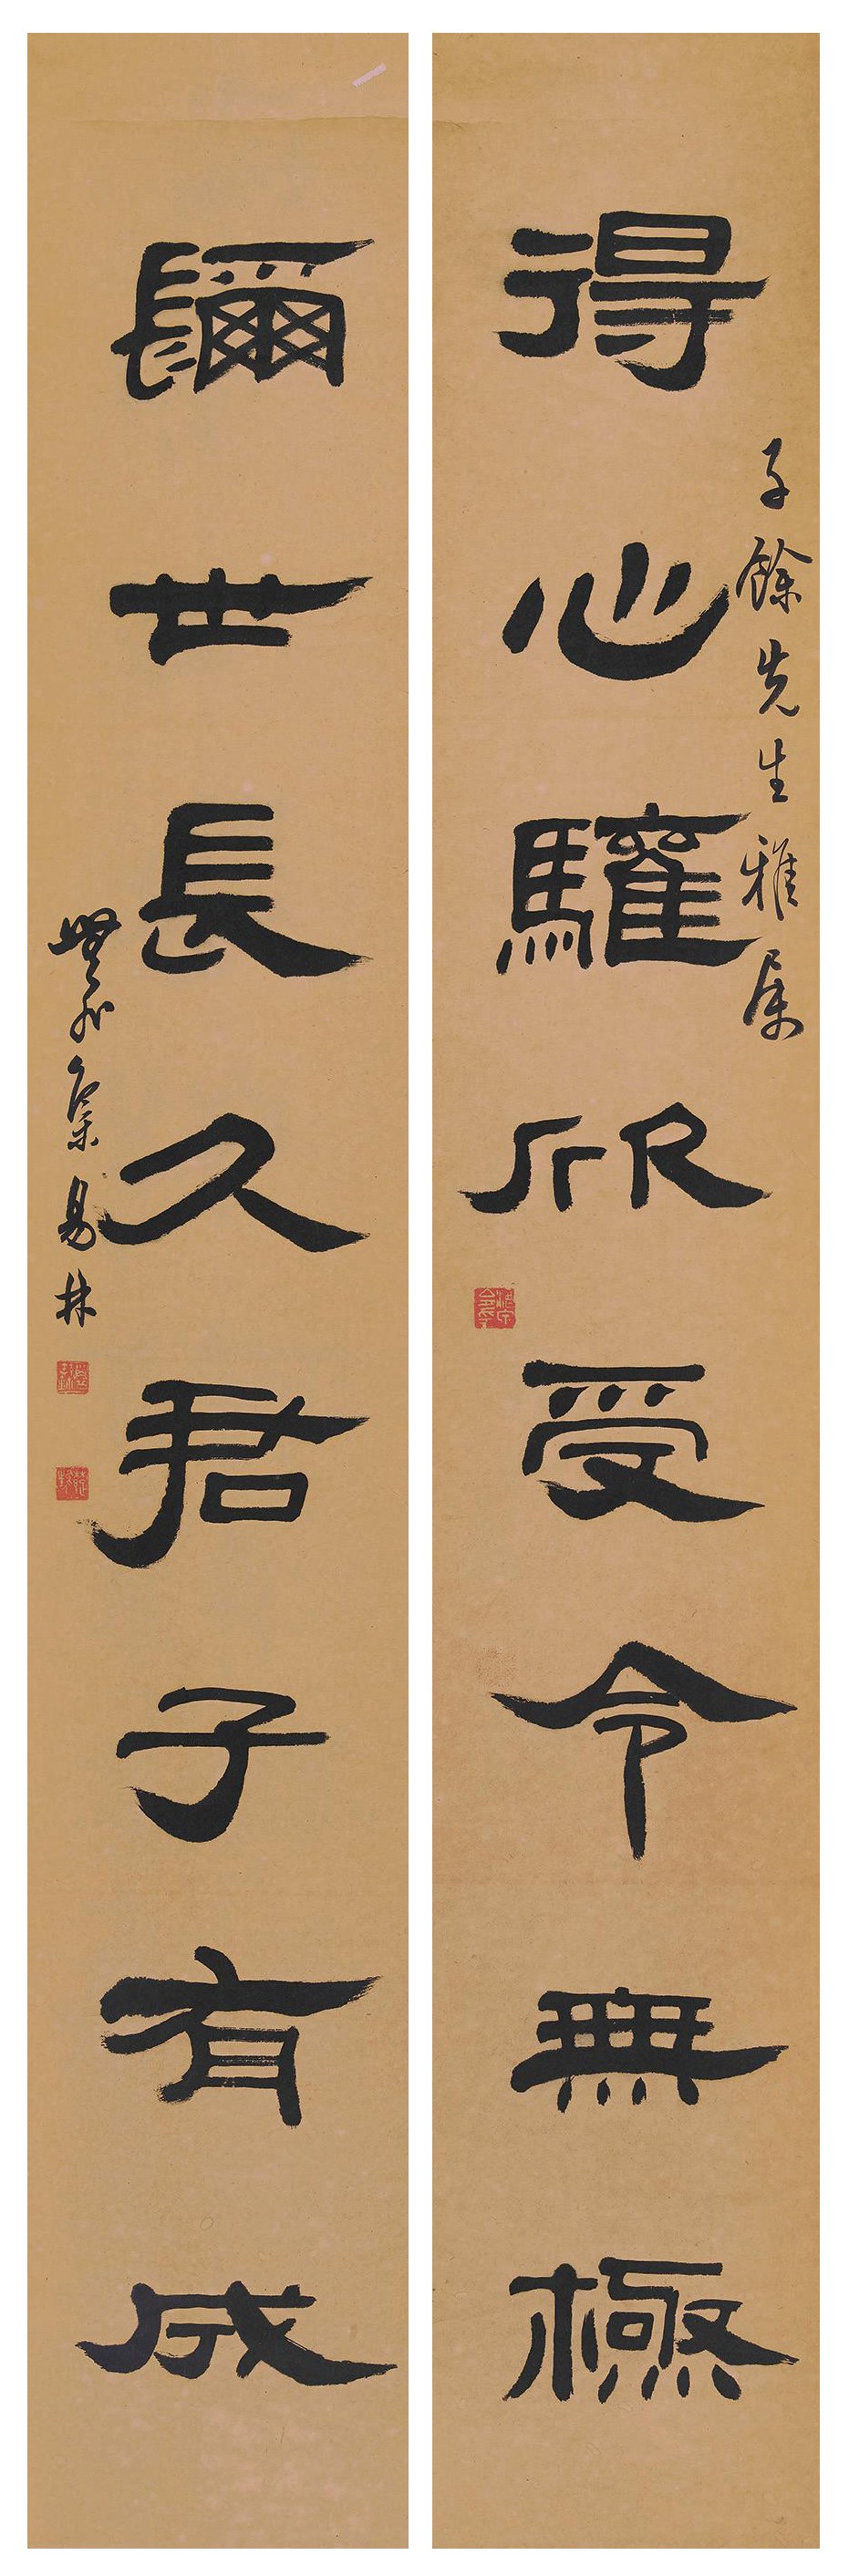 得心驩欣受令無極
子餘先生雅属
镾世長久君子有成
集易林